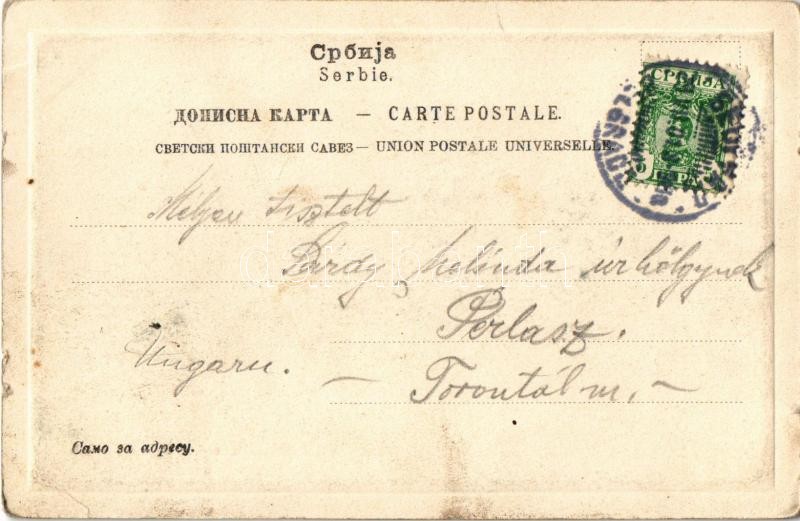 Србија
Serbie.
ДОПИСНА КАРТА — CARTE POSTALE.
СВЕТСКИ ПОШТАНСКИ САВЕЗ — UNION POSTALE UNIVERSELLE.
СРБИЈА
5 ПАРА
Mélyen tisztelt
Párdy Melinda úrhölgynek
Perlasz.
Ungarn.
— Torontál m. —
Само за адресу.